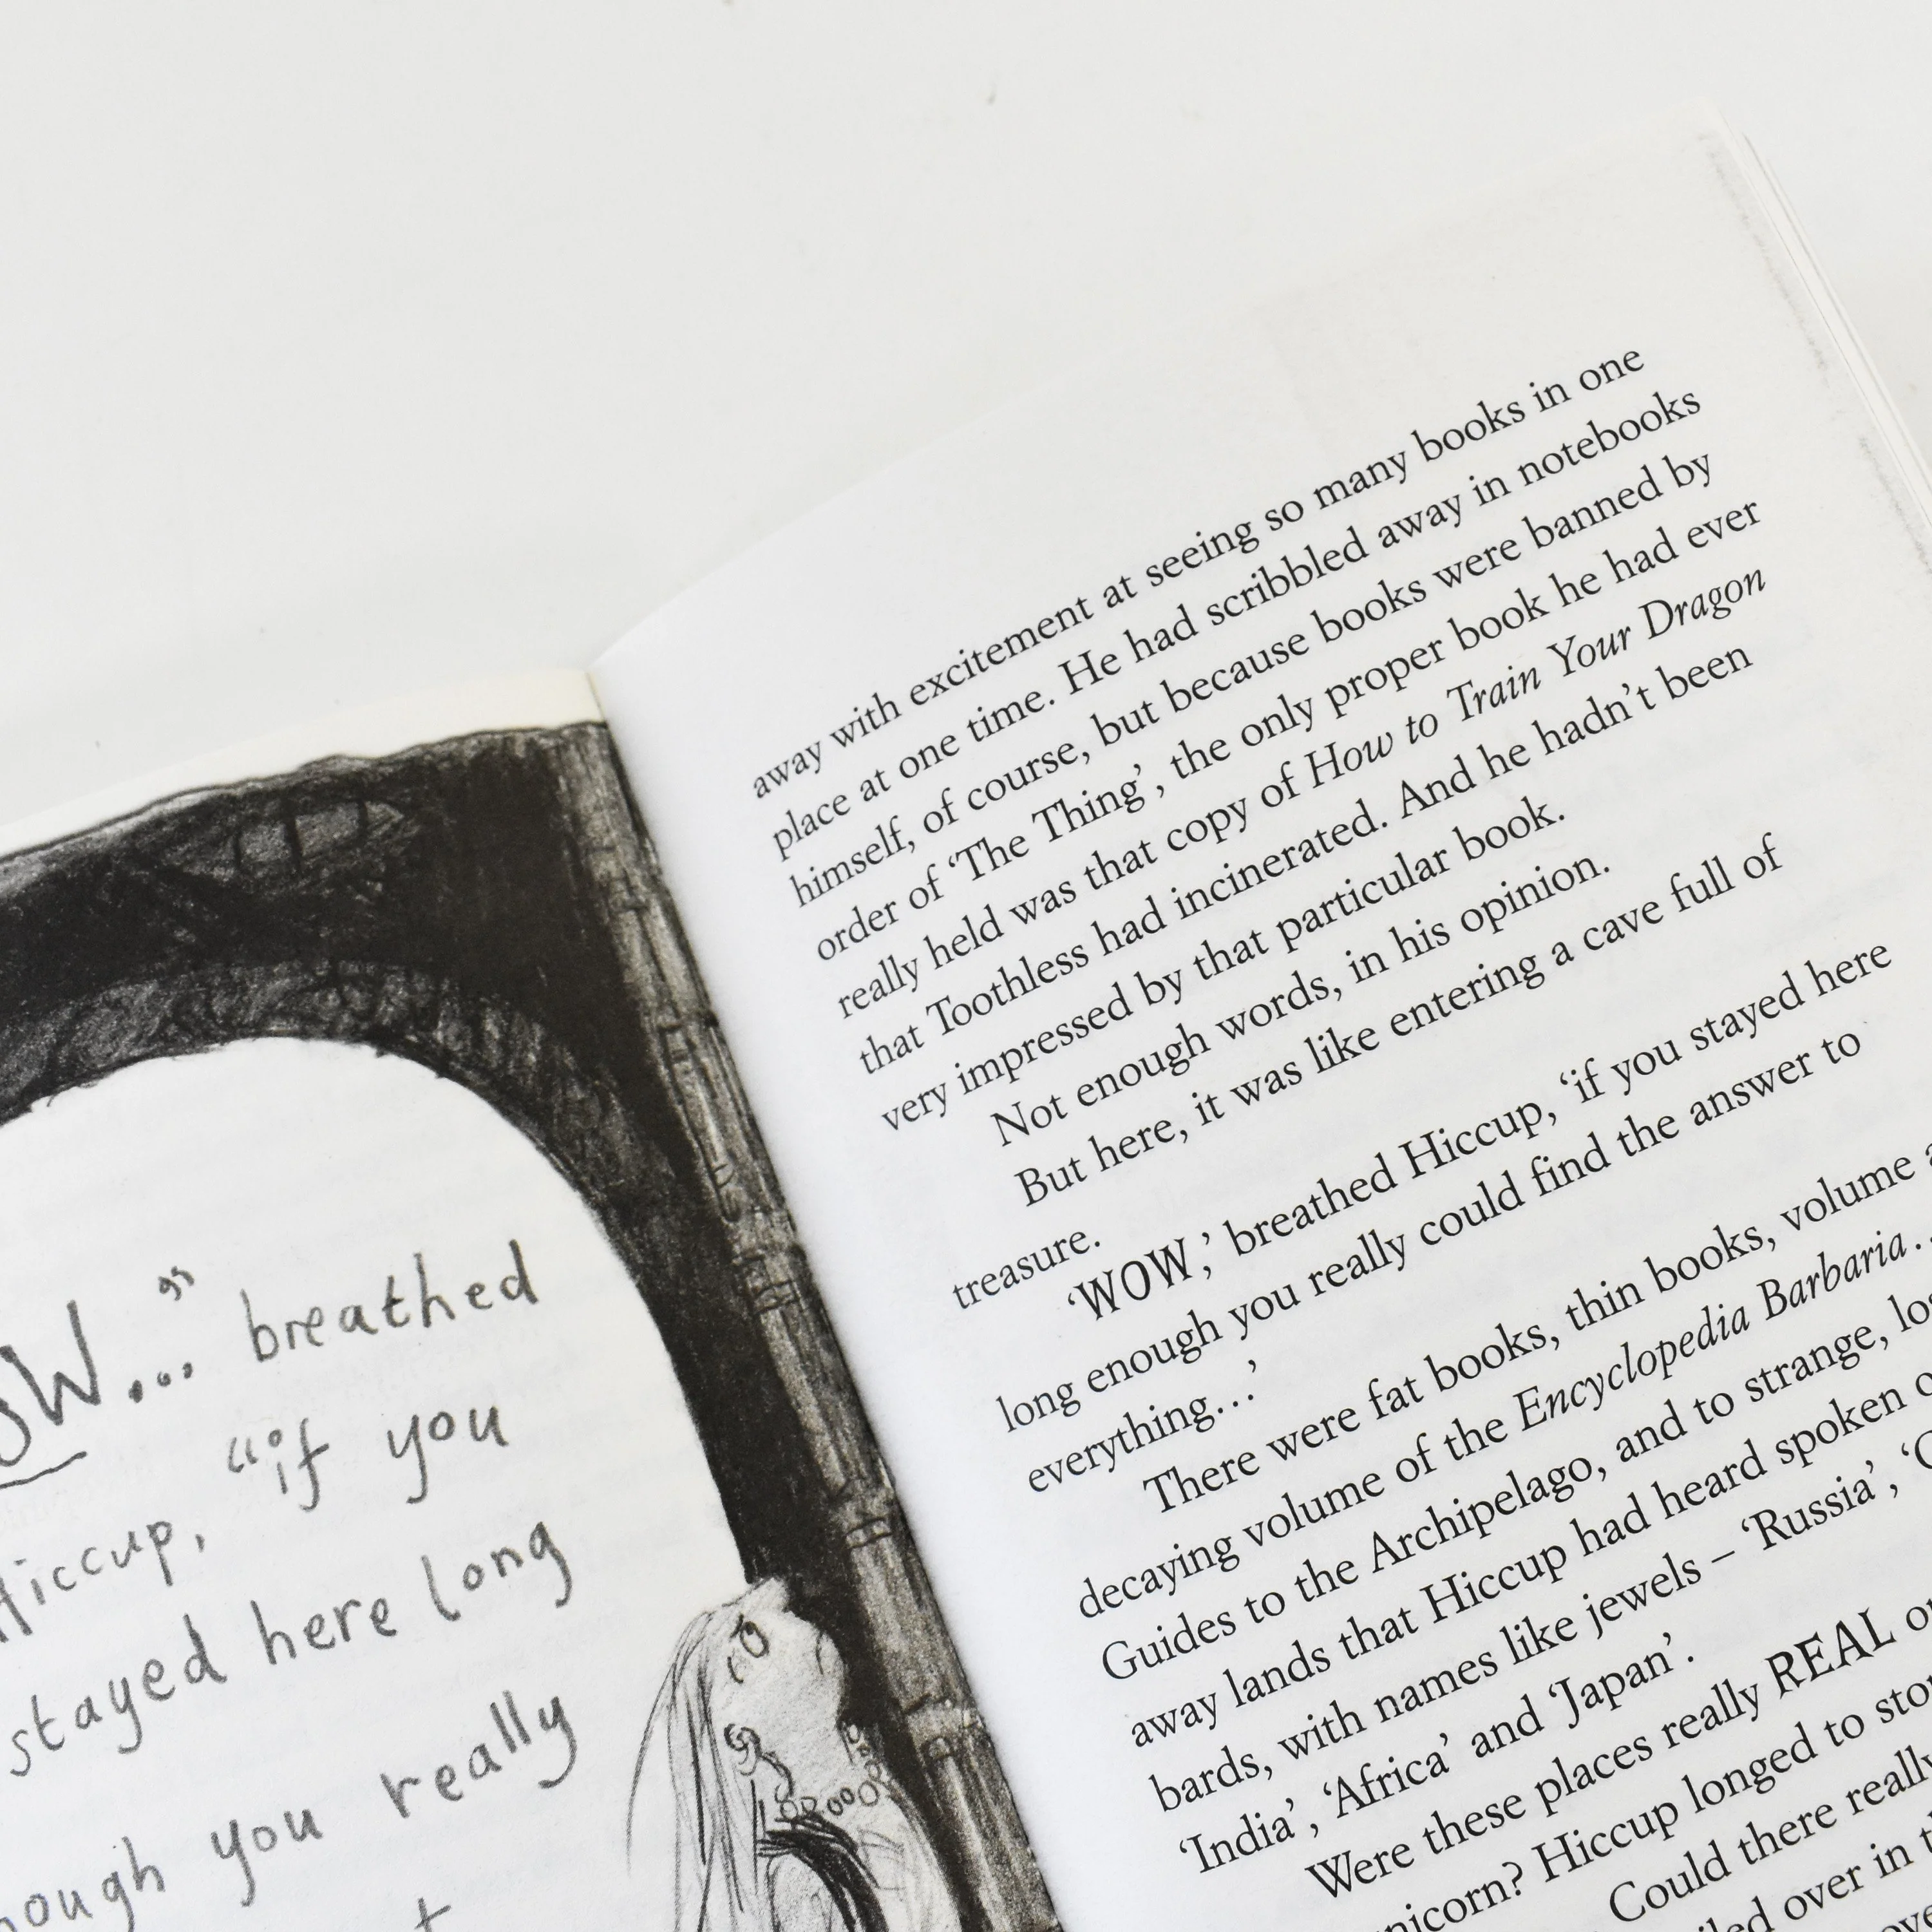 breathed
"if you
Hiccup,
stayed here long
you really
away with excitement at seeing so many books in one
place at one time. He had scribbled away in notebooks
himself, of course, but because books were banned by
order of ‘The Thing’, the only proper book he had ever
really held was that copy of How to Train Your Dragon
that Toothless had incinerated. And he hadn’t been
very impressed by that particular book.
Not enough words, in his opinion.
But here, it was like entering a cave full of
treasure.
‘WOW,’ breathed Hiccup, ‘if you stayed here
long enough you really could find the answer to
everything…’
There were fat books, thin books, volume
decaying volume of the Encyclopedia Barbaria…
Guides to the Archipelago, and to strange,
away lands that Hiccup had heard spoken
bards, with names like jewels – ‘Russia’,
‘India’, ‘Africa’ and ‘Japan’.
Were these places really REAL
Hiccup longed to
Could there really
over in